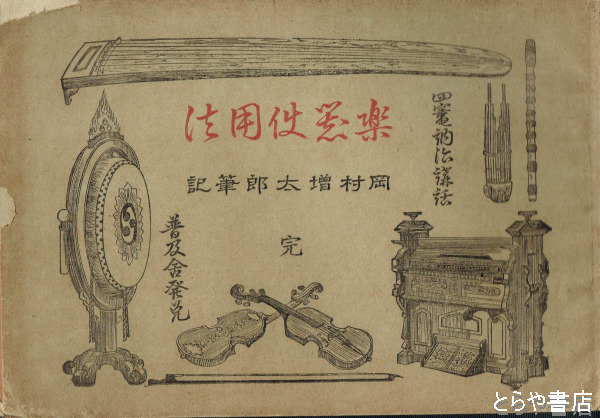 四竈訥治講話
楽器使用法
岡村増太郎筆記
完
普及舎発兌
とらや書店